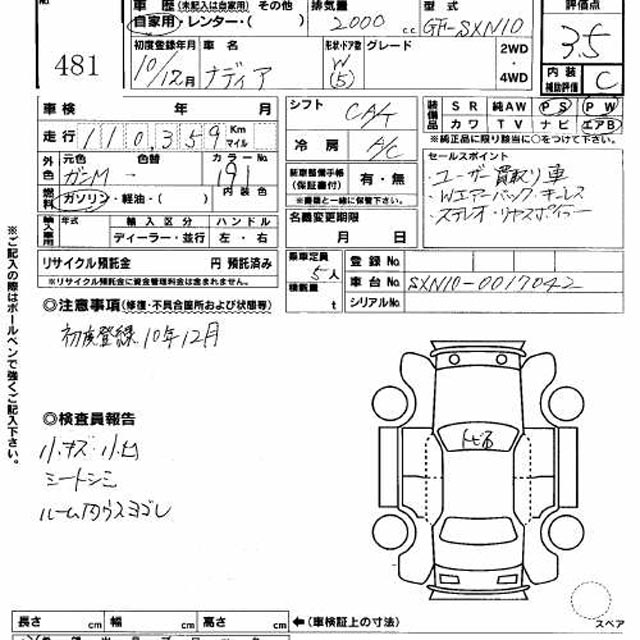 481
車 歴 (未記入は自家用) その他
自家用・レンター・( )
排気量
2000 cc
型 式
GF-SXN10
評価点
3.5
初度登録年月
10/12月
車 名
ナディア
形状・ドア数
W
(5)
グレード
2WD
・
4WD
内 装
補助評価
C
車 検 年 月
走 行 110,359 Km
マイル
外色
元色
ガンM
色替
-
カラーNo.
191
燃料
ガソリン・軽油・( )
内 装 色
輸入車用
年式
輸 入 区 分
ディーラー・並行
ハ ン ド ル
左 ・ 右
リサイクル預託金 円 預託済み
※リサイクル預託金に資金管理料金は含まれません。
シフト
CA/T
冷 房
A/C
新車整備手帳
(保証書付)
有・無
※車検と一緒に保管下さい。
名義変更期限
月 日
乗車定員
5人
積載量
t
装備品
S R 純AW P S P W
カ ワ T V ナ ビ エアB
※純正品に限り該当に○をつけて下さい。
セールスポイント
・ユーザー買取り車
・Wエアーバック・キーレス
・ステレオ・リヤスポイラー
登 録 No.
車 台 No. SXN10-0017042
シリアルNo.
◎注意事項 (修復・不具合箇所および状態等)
初度登録10年12月
◎検査員報告
小キズ・小凹
シートシミ
ルーム内ウスヨゴレ
トビ石
※ご記入の際はボールペンで強くご記入下さい。
長さ cm 幅 cm 高さ cm ←(車検証上の寸法)
スペア